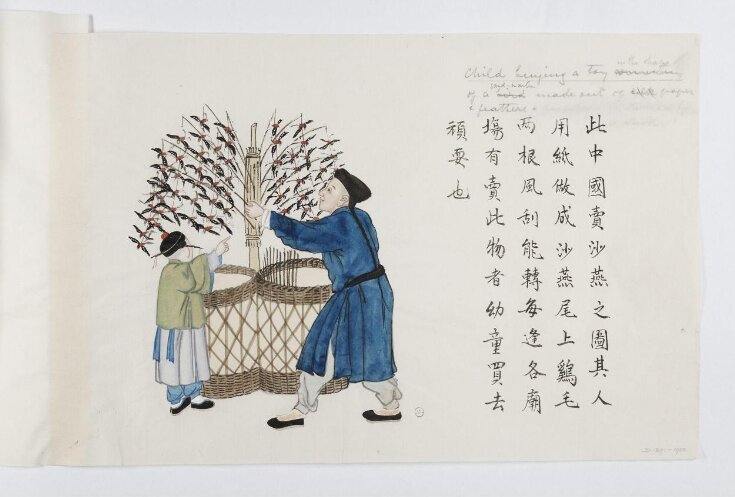 此中國賣沙燕之圖其人
用紙做成沙燕尾上鷄毛
兩根風刮能轉每逢各廟
塲有賣此物者幼童買去
頑耍也
Child buying a toy in the shape
of a made out of paper
& feathers